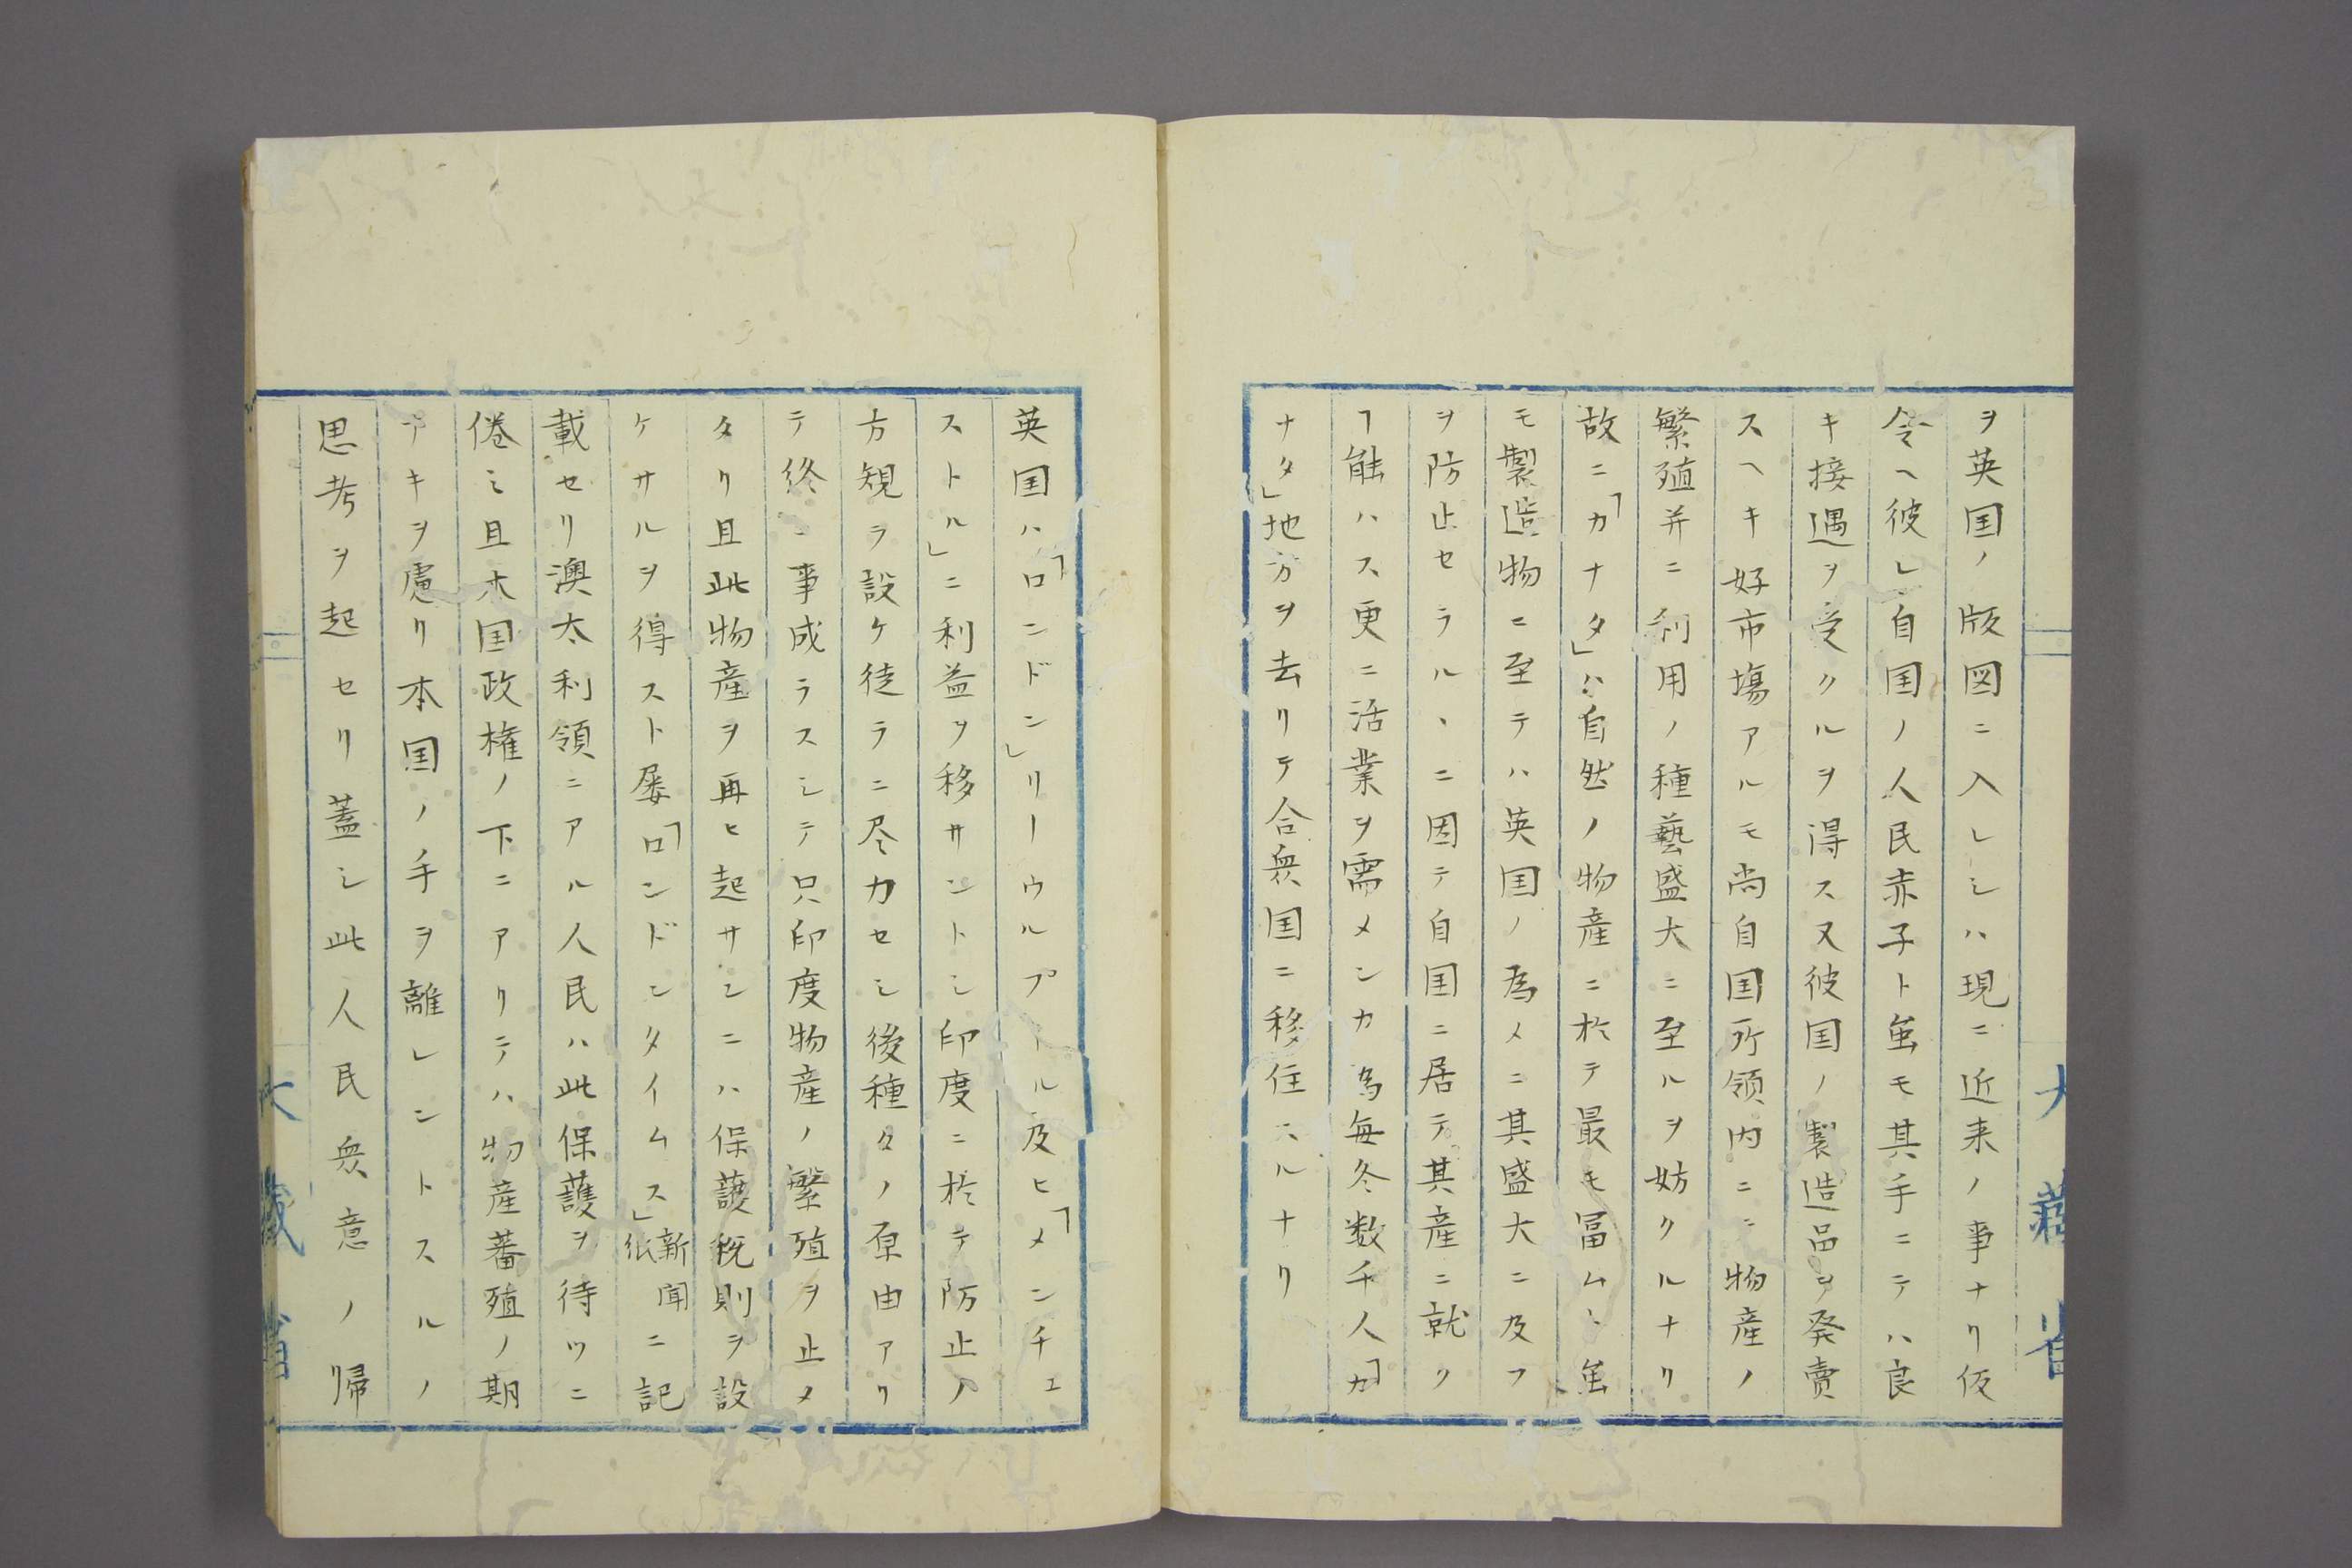 ヲ英国ノ版図ニ入レシハ現ニ近来ノ事ナリ仮
令ヘ彼レ自国ノ人民赤子ト虽モ其手ニテハ良
キ接遇ヲ受クルヲ得ス又彼国ノ製造品ヲ発賣
スヘキ好市場アルモ尚自国所領内ニニ物産ノ
繁殖并ニ利用ノ種藝盛大ニ至ルヲ妨クルナリ
故ニ「カナタ」ハ自然ノ物産ニ於テ最モ冨ムヽ虽
モ製造物ニ至テハ英国ノ為メニ其盛大ニ及フ
ヲ防止セラルヽニ因テ自国ニ居テ其産ニ就ク
ヿ能ハス更ニ活業ヲ需メンカ為毎冬数千人「カ
ナタ」地方ヲ去リテ合衆国ニ移住スルナリ
英国ハ「ロンドン」リーウルプール及ヒ「メンチェ
ストル」ニ利益ヲ移サントシ印度ニ於テ防止ノ
方規ヲ設ケ徒ラニ尽力セシ後種々ノ原由アリ
テ終ニ事成ラスシテ只印度物産ノ繁殖ヲ止メ
タリ且此物産ヲ再ヒ起サンニハ保護税則ヲ設
ケサルヲ得スト屡「ロンドンタイムス」新聞紙ニ記
載セリ澳太利領ニアル人民ハ此保護ヲ待ツニ
倦ミ且本国政権ノ下ニアリテハ物産蕃殖ノ期
ナキヲ慮リ本国ノ手ヲ離レントスルノ
思考ヲ起セリ蓋シ此人民衆意ノ帰
大藏省
大藏省